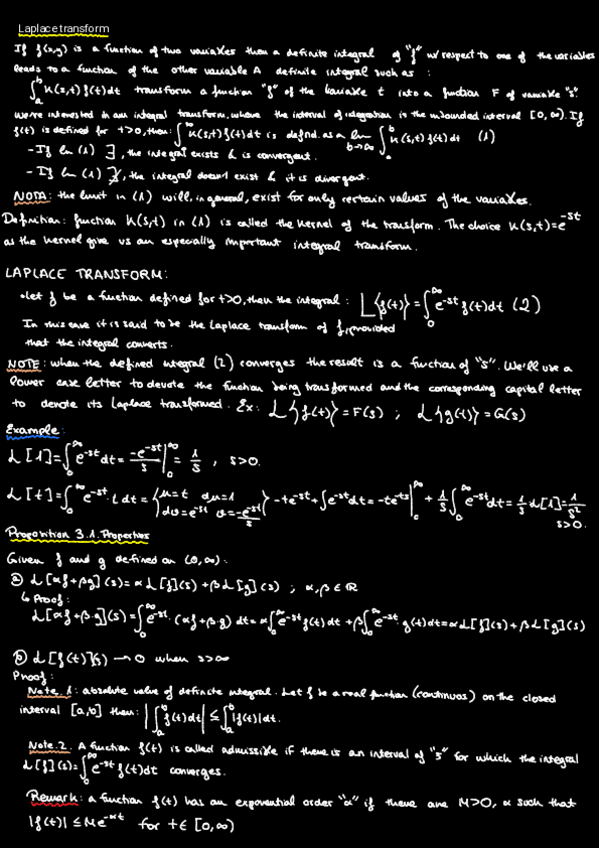 Laplace transform
If f(x,y) is a function of two variables then a definite integral of "f" w/respect to one of the variables
leads to a function of the other variable A definite integral such as :
∫_a^b K(s,t) f(t) dt transform a function "f" of the variable t into a function F of variable "s".
We're interested in an integral transform, where the interval of integration is the unbounded interval [0,∞). If
f(t) is defined for t>0, then: ∫_0^∞ K(s,t) f(t) dt is defind. as a lim_{b→∞} ∫_0^b K(s,t) f(t) dt (1)
- If lim (1) ∃, the integral exists & is convergent.
- If lim (1) ∄, the integral doesn't exist & it is divergent.
NOTA: the limit in (1) will, in general, exist for only certain values of the variables.
Definition: function K(s,t) in (1) is called the Kernel of the transform. The choice K(s,t)=e^{-st}
as the kernel give us an especially important integral transform.
LAPLACE TRANSFORM:
•Let f be a function defined for t>0, then the integral : L{f(t)} = ∫_0^∞ e^{-st} f(t) dt (2)
In this case it is said to be the Laplace transform of f, provided
that the integral converts.
NOTE: when the defined integral (2) converges the result is a function of "s". We'll use a
lower case letter to devote the function being transformed and the corresponding capital letter
to denote its Laplace transformed. Ex: L{f(t)} = F(s) ; L{g(t)} = G(s)
Example:
L[1] = ∫_0^∞ e^{-st} dt = -e^{-st}/s |_0^∞ = 1/s , s>0.
L[t] = ∫_0^∞ e^{-st} · t dt = {u=t du=1 dv=e^{-st} v=-e^{-st}/s} -te^{-st} + ∫e^{-st} dt = -te^{-ts} |_0^∞ + 1/s ∫_0^∞ e^{-st} dt = 1/s L[1] = 1/s² s>0.
Proposition 3.1. Properties
Given f and g defined on (0,∞):
ⓐ L[αf+βg](s) = α L[f](s) + β L[g](s) ; α,β ∈ ℝ
↳ Proof:
L[αf+β·g](s) = ∫_0^∞ e^{-st} · (αf+β·g) dt = α∫_0^∞ e^{-st} f(t) dt + β∫_0^∞ e^{-st} g(t) dt = α L[f](s) + β L[g](s)
ⓑ L[f(t)](s) → 0 when s→∞
Proof:
Note. 1: absolute value of definite integral. Let f be a real function (continuos) on the closed
interval [a,b] then: |∫_a^b f(t) dt| ≤ ∫_a^b |f(t)| dt.
Note.2. A function f(t) is called admissible if there is an interval of "s" for which the integral
L[f](s) = ∫_0^∞ e^{-st} f(t) dt converges.
Remark: a function f(t) has an exponential order "α" if there are M>0, α such that
|f(t)| ≤ M e^{-αt} for t ∈ [0,∞)